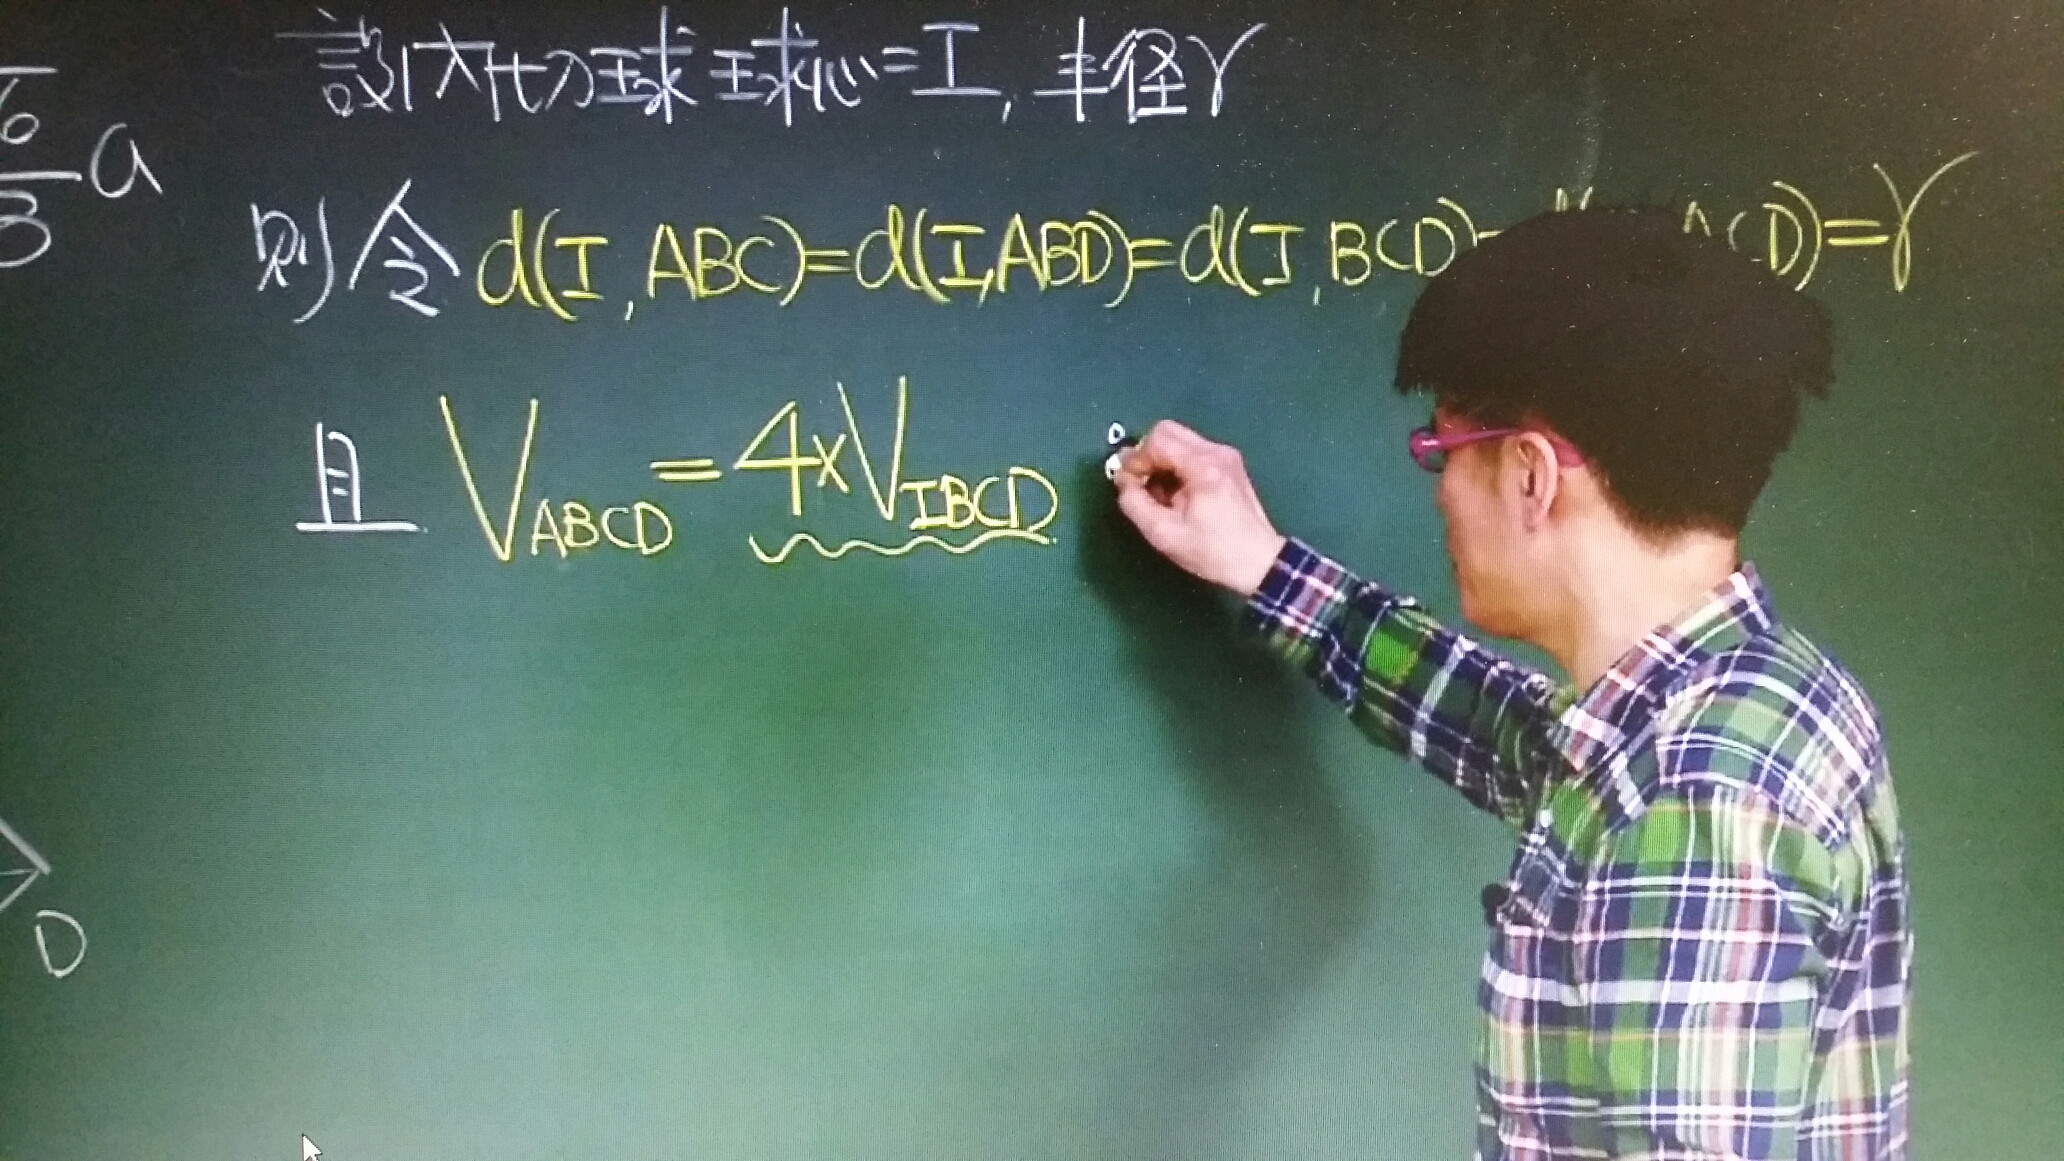 設內切球球心=I, 半径r
則令d(I,ABC)=d(I,ABD)=d(I,BCD)= CD)=r
且 V_ABCD=4×V_IBCD
a
D